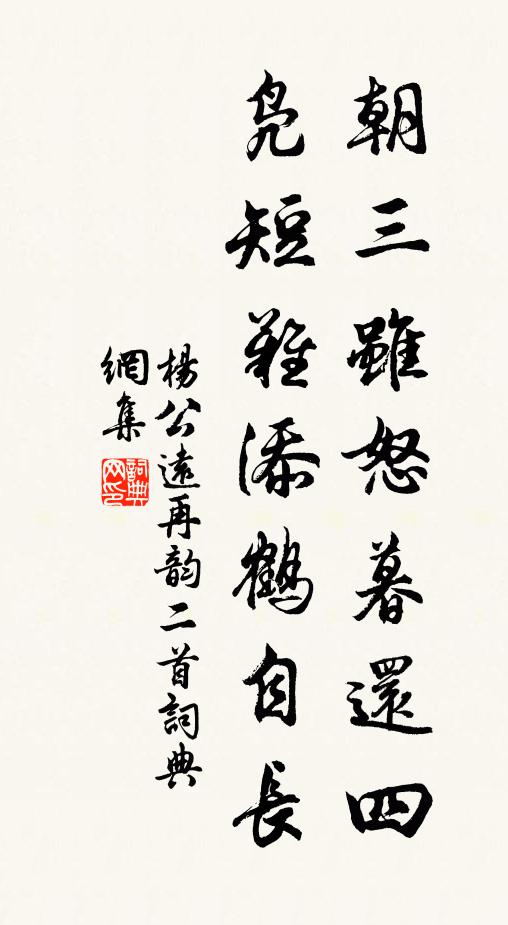 朝三雖怒暮還四
鳬短難添鶴自長
楊公遠再韵二首詞典
網集
詞典网印